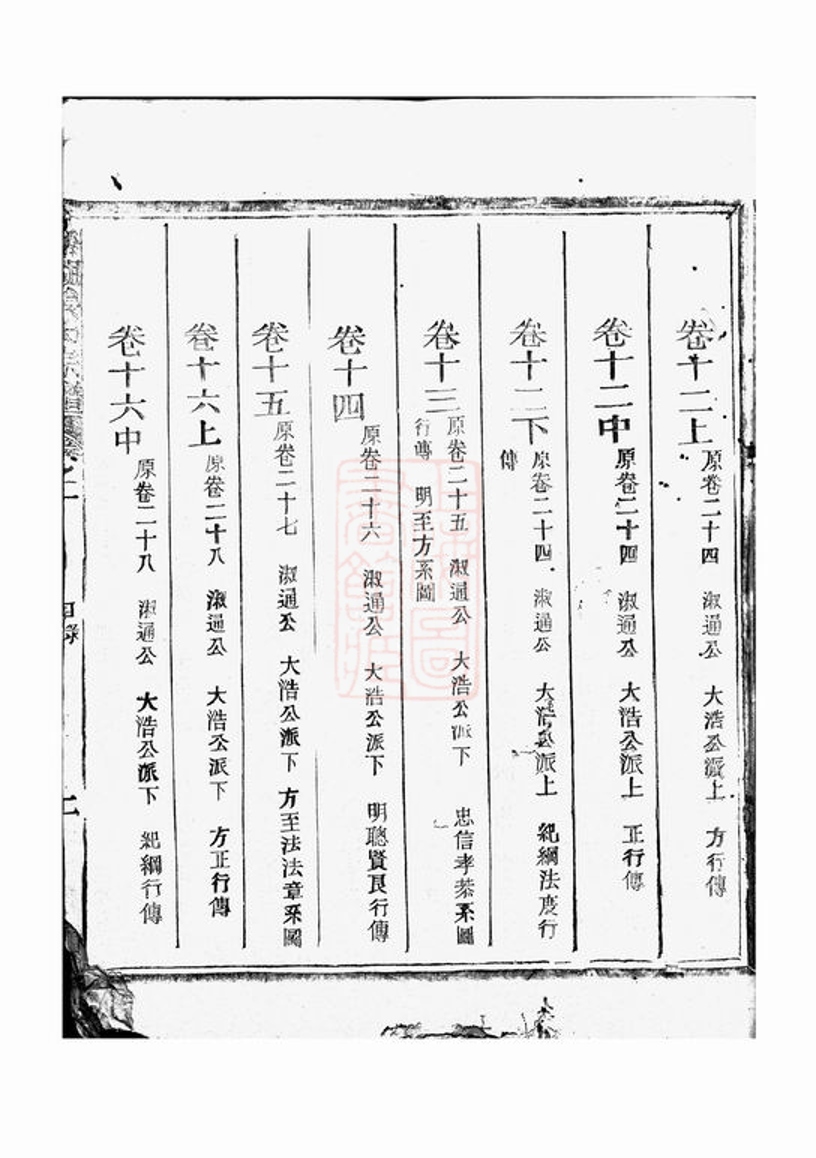 卷十二上 原卷二十四 淑通公 大浩公派上 方行傳
卷十二中 原卷二十四 淑通公 大浩公派上 正行傳
卷十二下 原卷二十四 淑通公 大浩公派上 紀綱法度行
傳
卷十三 原卷二十五 淑通公 大浩公派下 忠信孝恭系圖
行傳 明至方系圖
卷十四 原卷二十六 淑通公 大浩公派下 明聰賢良行傳
卷十五 原卷二十七 淑通公 大浩公派下 方至法法章系圖
卷十六上 原卷二十八 淑通公 大浩公派下 方正行傳
卷十六中 原卷二十八 淑通公 大浩公派下 紀綱行傳
目錄